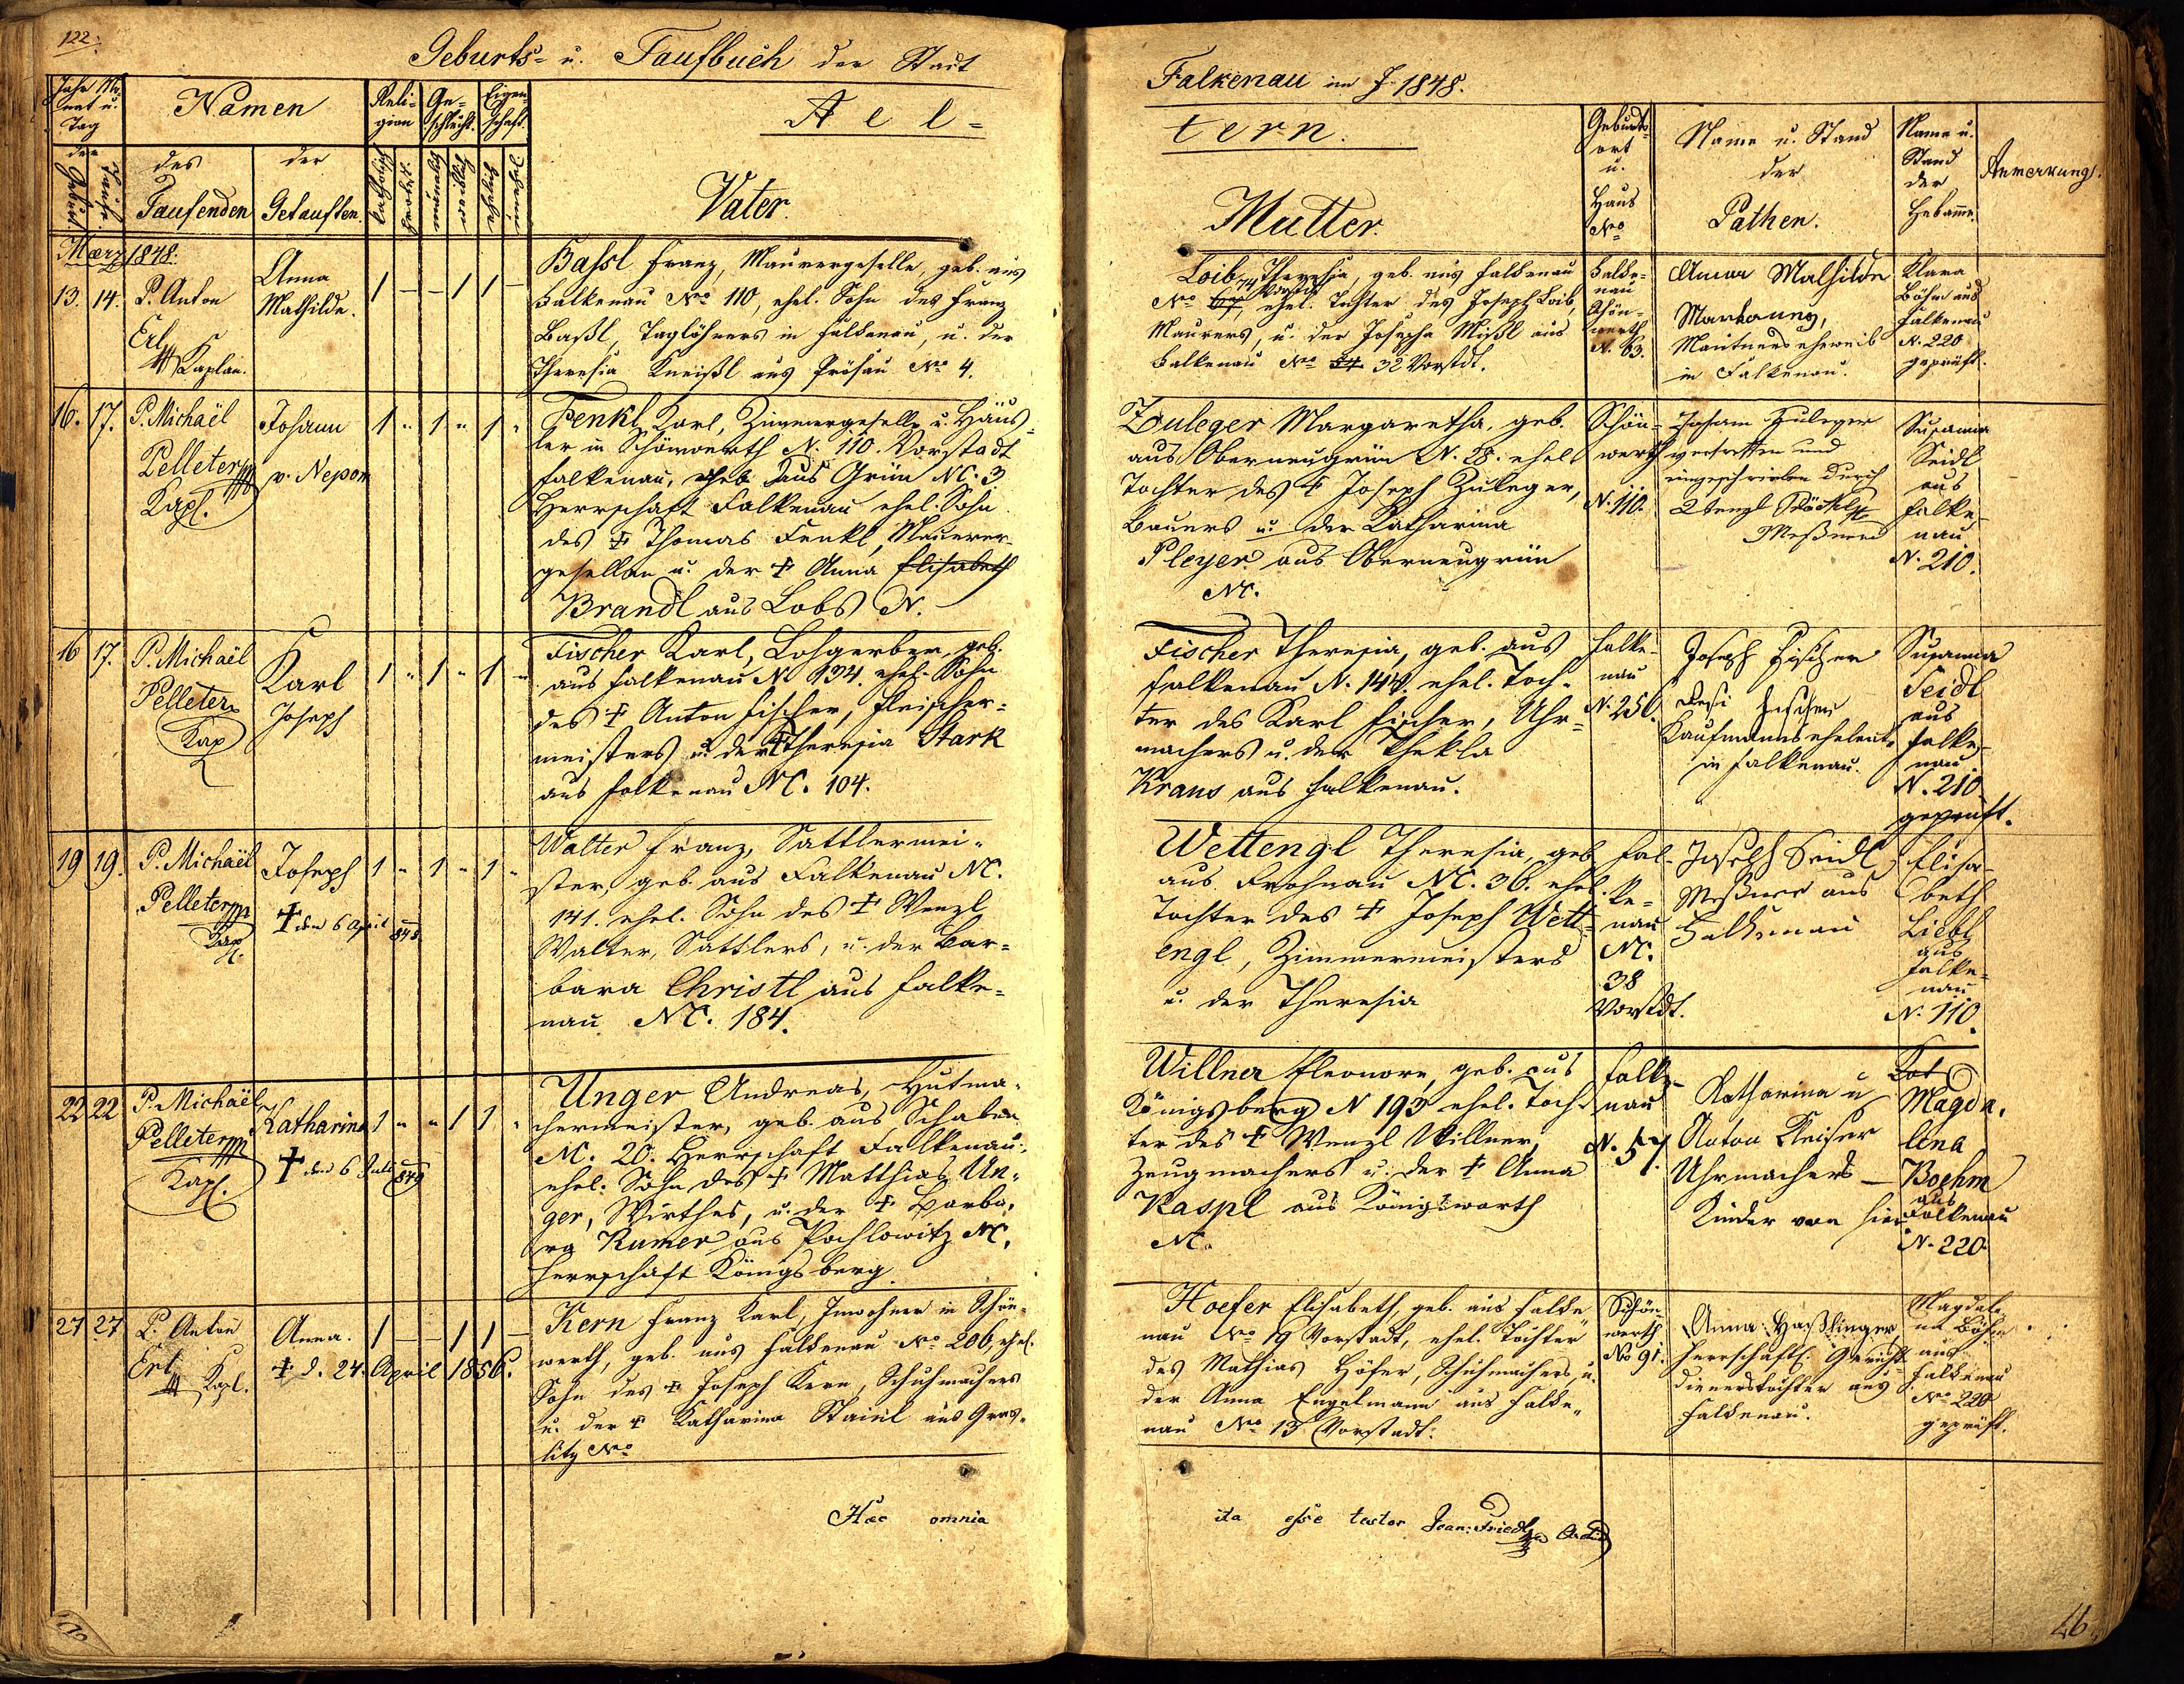 122.
Geburts- u. Taufbuch der Stadt
Falkenau im J. 1848.
Jahr Mo-
nat u.
Tag
der
Geburt
Taufe
Namen
des
Taufenden
der
Getauften.
Reli-
gion
katholisch
protest.
Ge-
schlecht.
männlich
weiblich
Eigen-
schaft.
ehelich
unehelich
A e l -
t e r n .
Vater.
Mutter.
Geburts-
ort
u.
Haus
No
Name u. Stand
der
Pathen.
Name u.
Stand
der
Hebamme.
Anmerkung.
Maerz 1848.
13. 14. P. Anton
Erl
Kaplan.
Anna
Mathilde.
1 — — 1 1 —
Bassl Franz, Maurergeselle, geb. aus
Falkenau No 110, ehel. Sohn des Franz
Baßl, Taglöhners in Falkenau, u. der
Theresia Kneißl aus Prösau No 4.
Loib Theresia, geb. aus Falkenau
No 74 Vorstdt, ehel. Tochter des Joseph Loib,
Maurers, u. der Josepha Mißl aus
Falkenau No 32 Vorstdt.
Falke-
nau
Schön-
werth
N. 63.
Anna Mathilde
Mautners eheweib
in Falkenau.
Klara
Böhm aus
Falkenau
N. 220
geprüft.
16. 17. P. Michaël
Pelleter
Kapl.
Johann
v. Nepom
1 " 1 " 1 "
Fenkl Karl, Zimmergeselle u. Häus-
ler in Schönwerth N. 110. Vorstadt
Falkenau, geb. aus Grün NC. 3
Herrschaft Falkenau ehel. Sohn
des ‡ Thomas Fenkl, Maurer-
gesellen u. der ‡ Anna Elisabeth
Brandl aus Lobs N.
Zuleger Margaretha, geb.
aus Oberneugrün N. 28. ehel.
Tochter des ‡ Joseph Zuleger,
Bauers u. der Katharina
Pleyer aus Oberneugrün
NC.
Schön-
werth
N. 110.
Johann Zuleger
vertretten und
eingeschrieben durch
Wenzl
Meßner
Susanna
Seidl
aus
Falke-
nau
N. 210.
16 17. P. Michaël
Pelleter
Kap
Karl
Joseph
1 " 1 " 1 "
Fischer Karl, Lohgerber, geb.
aus Falkenau N 134. ehel. Sohn
des ‡ Anton Fischer, Fleischer-
meisters u. der ‡ Theresia Stark
aus Falkenau NC. 104.
Fischer Theresia, geb. aus
Falkenau N. 144. ehel. Toch-
ter des Karl Fischer, Uhr-
machers u. der Thekla
Kraus aus Falkenau.
Falke-
nau
N. 256.
Joseph Fischer
Resi Fischer
Kaufmanns eheleute
in Falkenau.
Susanna
Seidl
aus
Falke-
nau
N. 210.
geprüft.
19 19. P. Michaël
Pelleter
Kapl.
Joseph
‡ den 6 April 848
1 " 1 " 1 "
Walter Franz, Sattlermei-
ster, geb. aus Falkenau NC.
141. ehel. Sohn des ‡ Wenzl
Walter, Sattlers, u. der Bar-
bara Christl aus Falke-
nau NC. 184.
Wettengl Theresia, geb
aus Frohnau NC. 36. ehel.
Tochter des ‡ Joseph Wett-
engl, Zimmermeisters
u. der Theresia
Fal-
ke-
nau
NC.
38
Vorstdt.
Joseph Seidl
Meßner aus
Falkenau
Elisa-
beth
Liebl
aus
Falke-
nau
N. 110.
22 22 P. Michaël
Pelleter
Kapl.
Katharina
‡ den 6 Juli 849
1 " " 1 1 "
Unger Andreas, Hutma-
chermeister, geb. aus Schaben
NC. 20. Herrschaft Falkenau.
ehel. Sohn des ‡ Matthias Un-
ger, Wirthes, u. der ‡ Barba-
ra Rumer aus Pochlowitz NC.
Herrschaft Königsberg.
Willner Eleonore, geb. aus
Königsberg N 193 ehel. Toch-
ter des ‡ Wenzl Willner,
Zeugmachers u. der ‡ Anna
Kaspl aus Königswarth
NC.
Falke-
nau
N. 57.
Katharina u
Anton Kaiser
Uhrmachers —
Kinder von hier
Magda-
lena
Boehm
aus
Falkenau
N. 220.
27 27 P. Anton
Erl
Kapl.
Anna.
‡ d. 24. April 1856.
1 — — 1 1 —
Kern Franz Karl, Inwohner in Schön-
werth, geb. aus Falkenau No 206, ehel.
Sohn des ‡ Joseph Kern, Schuhmachers
u. der ‡ Katharina Stainl aus Gras-
litz No
Hoefer Elisabeth, geb. aus Falke-
nau No 19 Vorstadt, ehel. Tochter
des Mathias Höfer, Schuhmachers, u.
der Anna Engelmann aus Falke-
nau No 13 Vorstadt.
Schön-
werth
No 91.
Anna Haßlinger
herrschaftl. Gerichts-
dienerstochter aus
Falkenau.
Magdale-
na Böhm
aus
Falkenau
No 220
geprüft.
Haec omnia
ita esse testor Joan: Friedl
46